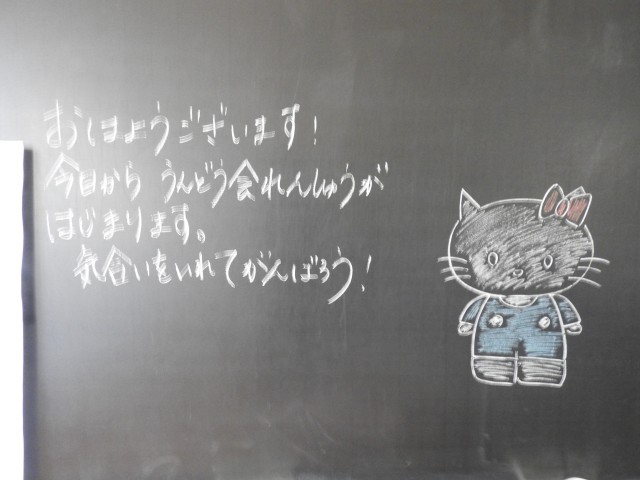 おはようございます！
今日から うんどう会れんしゅうが
はじまります。
気合いをいれてがんばろう！